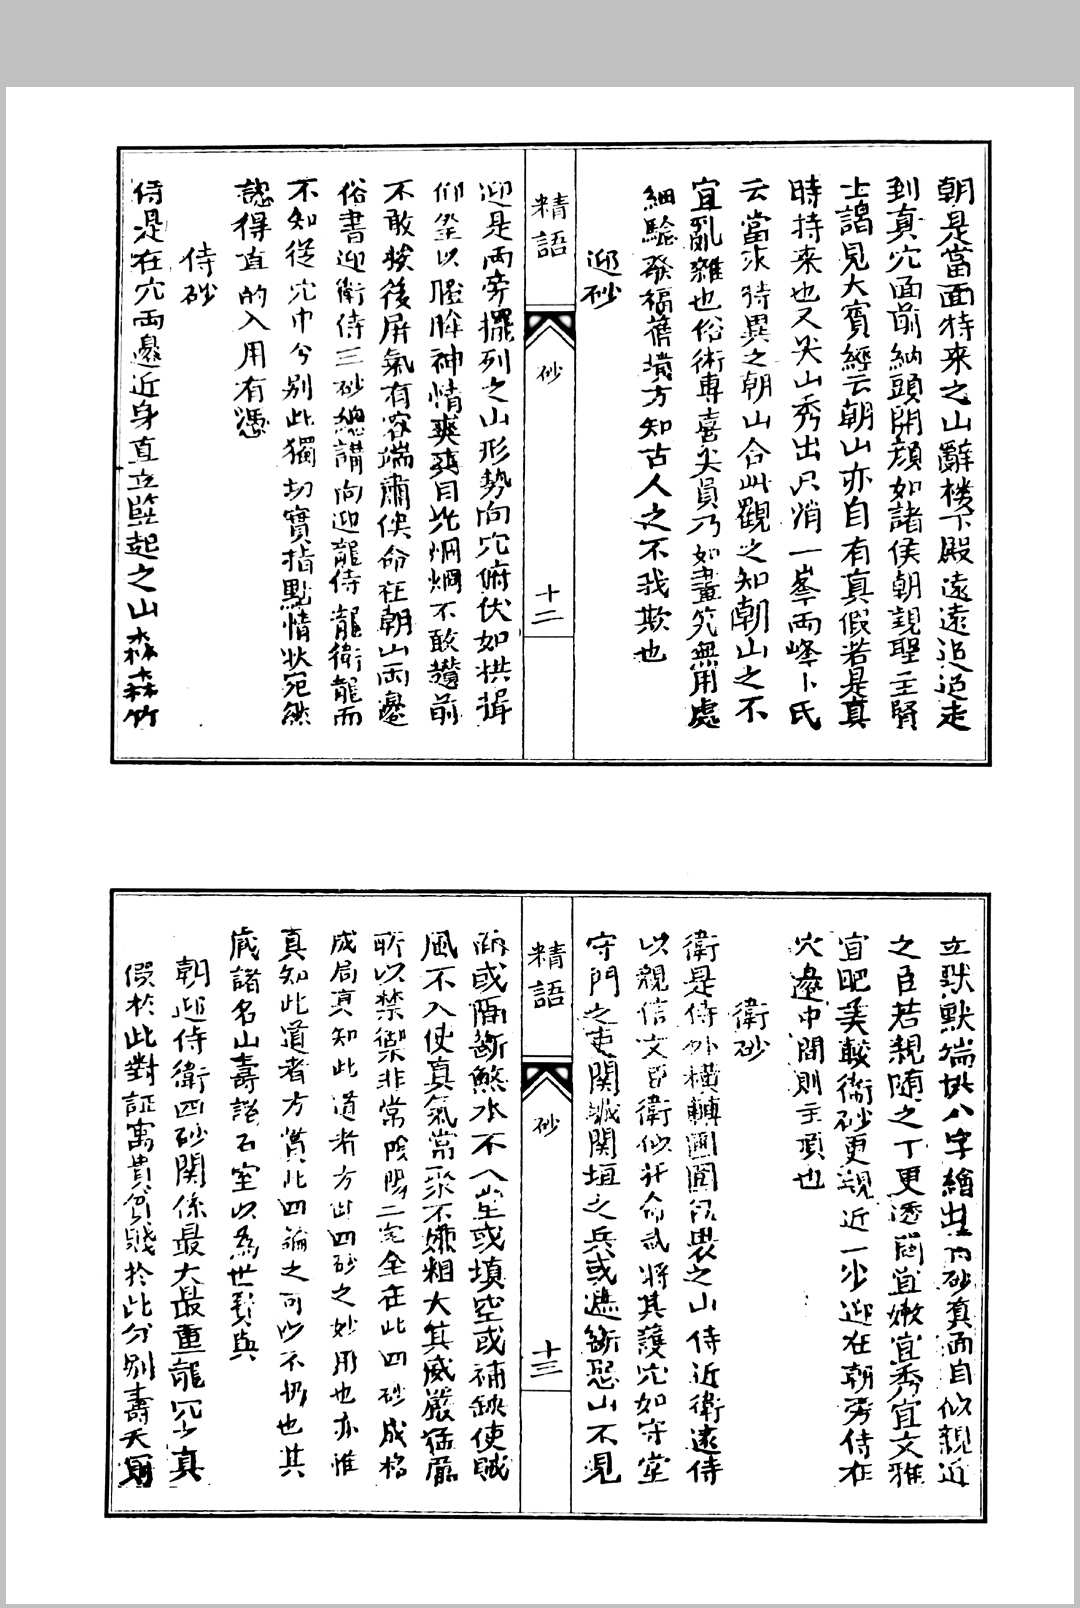 朝是當面特來之山辭樓下殿遠遠追追走
到真穴面前納頭開顏如諸侯朝覲聖主賢
士謁見大賓經云朝山亦自有真假若是真
時特來也又尖山秀出只消一峯兩峰卜氏
云當求特異之朝山合此觀之知朝山之不
宜亂雜也俗術專喜尖員乃如畫笊無用處
細驗發福舊墳方知古人之不我欺也
迎砂
精語
砂
十二
迎是兩旁擺列之山形勢向穴俯伏如拱揖
仰望以睲眸神情爽爽目光烱烱不敢攙前
不敢挨後屏氣有容端肅俟命在朝山兩邊
俗書迎衛侍三砂總講向迎龍侍龍衛龍而
不知從穴中分別此獨切實指點情狀宛然
認得直的入用有憑
侍砂
侍是在穴兩邊近身直立豎起之山森森竹
立默默端拱八字繪出侍砂真面自似親近
之臣若親隨之丁更透闊宜嫩宜秀宜文雅
宜肥美較衛砂更親近一步迎在朝旁侍在
穴邊中間則主項也
衛砂
衛是侍外橫轉圍圓恆畏之山侍近衛遠侍
以親信文臣衛似奸命武將其護穴如守堂
守門之吏関誠関垣之兵或遮斷惡山不見
精語
砂
十三
或兩斷煞水不入堂或填空或補缺使賊
風不入使真氣常聚不嫌粗大其威嚴猛厲
所以禁禦非常陰陽二宅全在此四砂成格
成局真知此道者方此四砂之妙用也亦惟
真知此道者方賞此四論之可以不朽也其
歲諸名山壽諸石室以為世寶與
朝迎侍衛四砂関係最大最重龍穴之真
假於此對証富貴貧賤於此分別壽夭賢